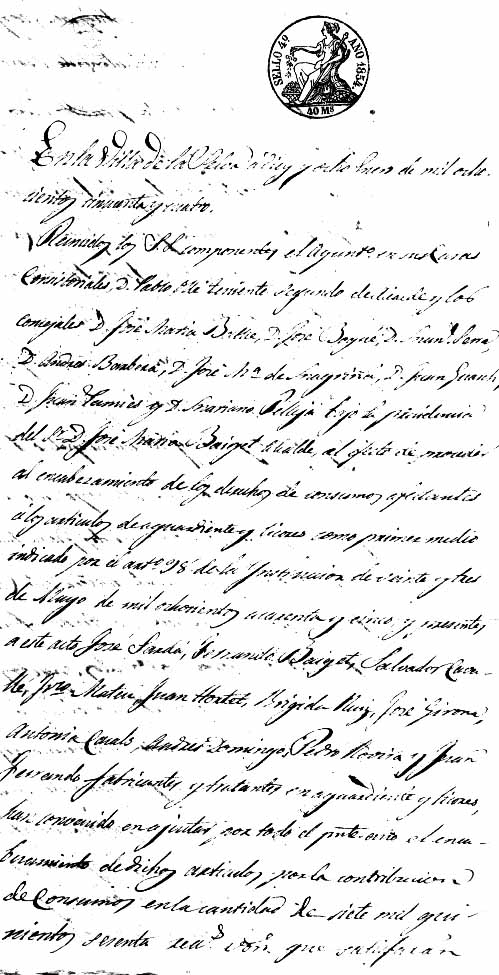 SELLO 4º AÑO 1854.
40 Ms
En la Villa de la Selva a diez y ocho Enero de mil ocho-
cientos cincuenta y cuatro.
Reunidos los SS. componentes el Ayuntº. en sus Casas
Consistoriales, D. Pablo teniente segundo de Alcalde y los
concejales D. José Maria Batlle, D. José D. Juan Serra,
D. Andres Barberá, D. José Mª. de D. Juan Guasch,
D. Juan y D. Mariano Pellejá bajo la presidencia
del Sr. D. José Maria Baiget Alcalde, al efecto de proceder
al encabezamiento de los derechos de consumos afectantes
a los articulos de aguardiente y licores como primer medio
indicado por el artº. 98 de la Instruccion de veinte y tres
de Mayo de mil ochocientos cuarenta y cinco, y presentes
a este acto José Sardá, Fernando Baiget, Salvador Cava-
llé, Frco. Mateu, Juan Hortet, Brigida Ruiz, José Girona,
Antonia Casals, Andres Domingo, Pedro Rovira y Juan
Ferrando fabricantes y tratantes en aguardiente y licores,
han convenido en ajustar, por todo el pnte. año el enca-
bezamiento de dichos articulos, por la contribucion
de Consumos en la cantidad de siete mil qui-
nientos sesenta reas. von. que satisfarán